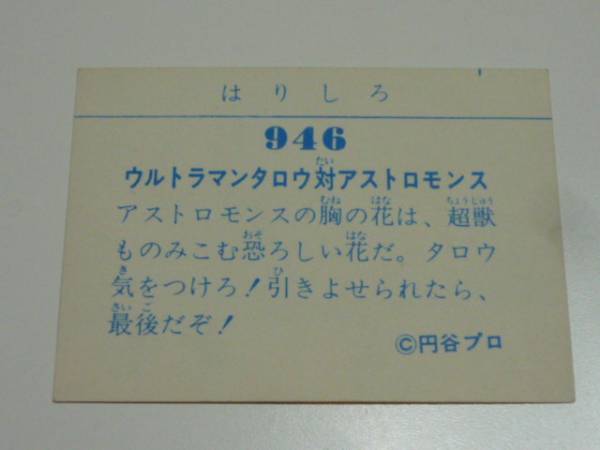 はりしろ
946
ウルトラマンタロウ対アストロモンス
アストロモンスの胸の花は、超獣
ものみこむ恐ろしい花だ。タロウ
気をつけろ！引きよせられたら、
最後だぞ！
©円谷プロ